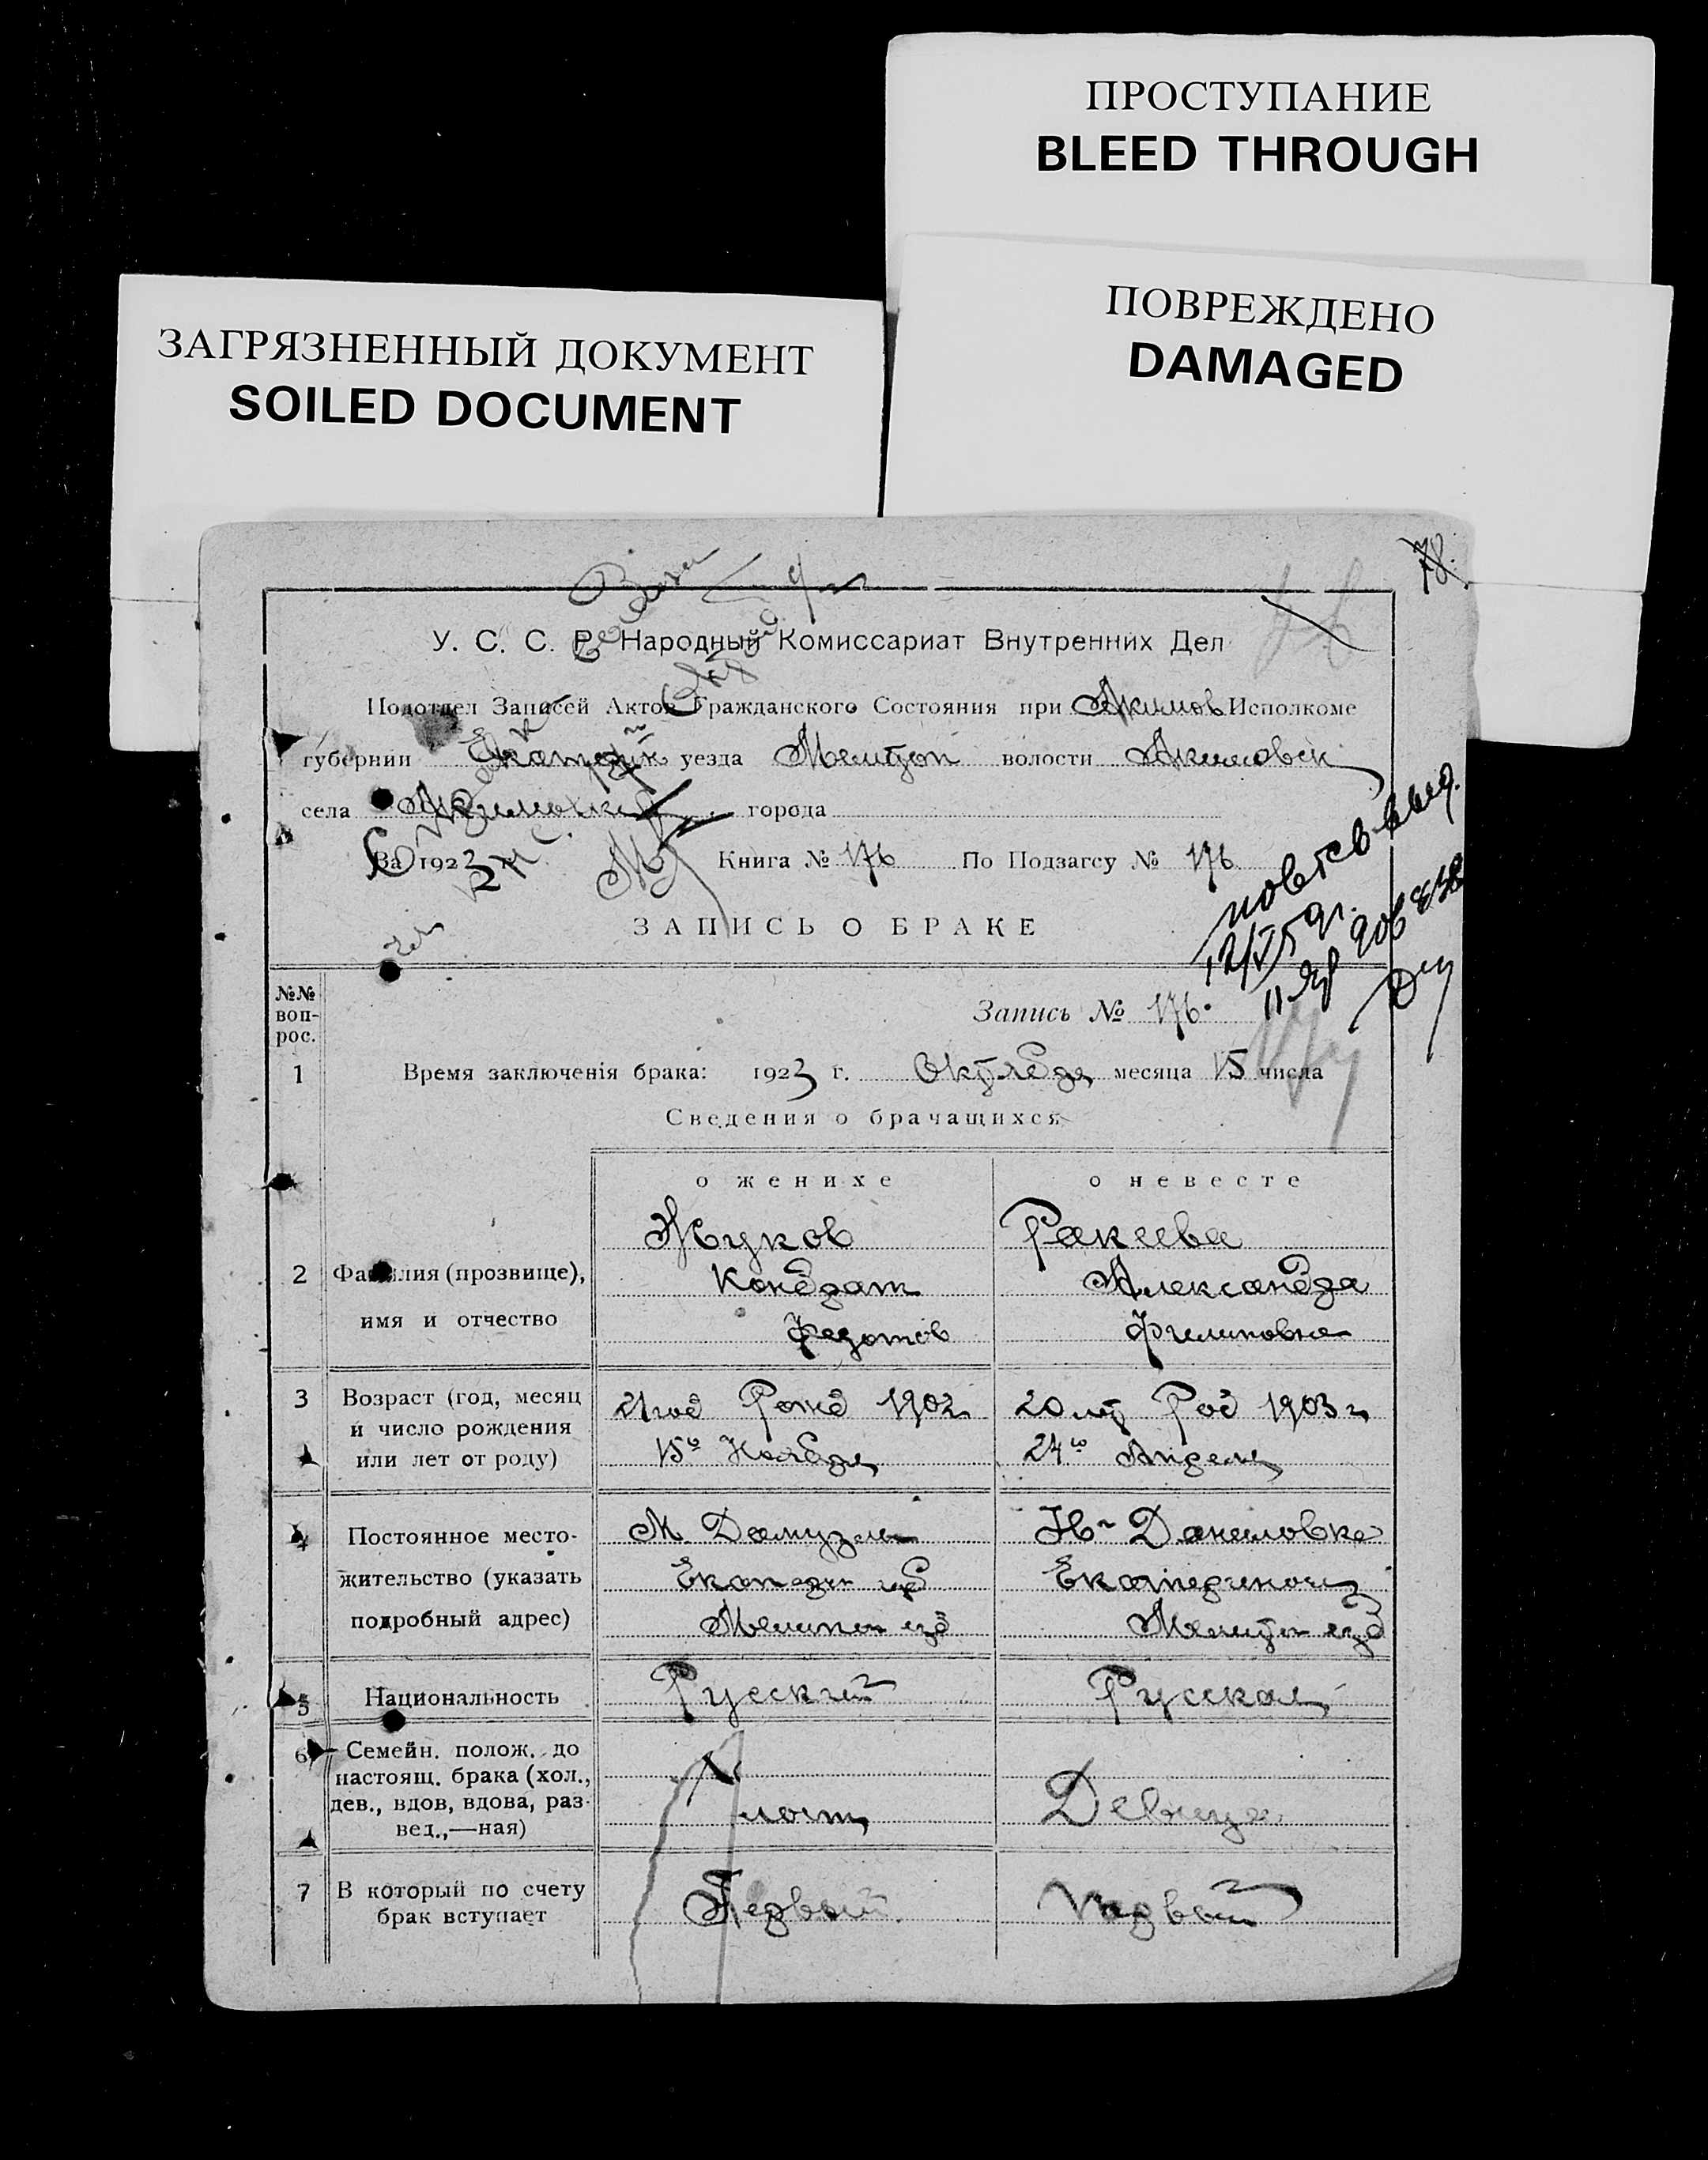 ПРОСТУПАНИЕ
BLEED THROUGH
ПОВРЕЖДЕНО
DAMAGED
ЗАГРЯЗНЕННЫЙ ДОКУМЕНТ
SOILED DOCUMENT
78.
У. С. С. Р. Народный Комиссариат Внутренних Дел
Подотдел Записей Актов Гражданского Состояния при Акимов Исполкоме
губернии Екатерин уезда Мелитоп волости Акимовск
села Акимовка города
За 1923 г. Книга № 176 По Подзагсу № 176
повт св выд.
12/V 59 г.
ЗАПИСЬ О БРАКЕ
№№ вопрос.
Запись № 176.
1 Время заключенія брака: 1923 г. Октября месяца 15 числа
Сведения о брачащихся
о женихе о невесте
Жуков Ракеева
2 Фамилия (прозвище), Кондрат Александра
имя и отчество Федотов Филиповна
3 Возраст (год, месяц 21 год Рожд 1902 20 лет Род 1903 г
и число рождения
или лет от роду) 15го Ноября 24го Апреля
4 Постоянное место- М. Дамузлы Н- Даниловка
жительство (указать Екатерин губ Екатеринос
подробный адрес) Мелитоп уезд Мелитоп уезд
5 Национальность Русский Русская
6 Семейн. полож. до
настоящ. брака (хол.,
дев., вдов, вдова, раз- Девица
вед.,—ная)
7 В который по счету Первый Первый
брак вступает